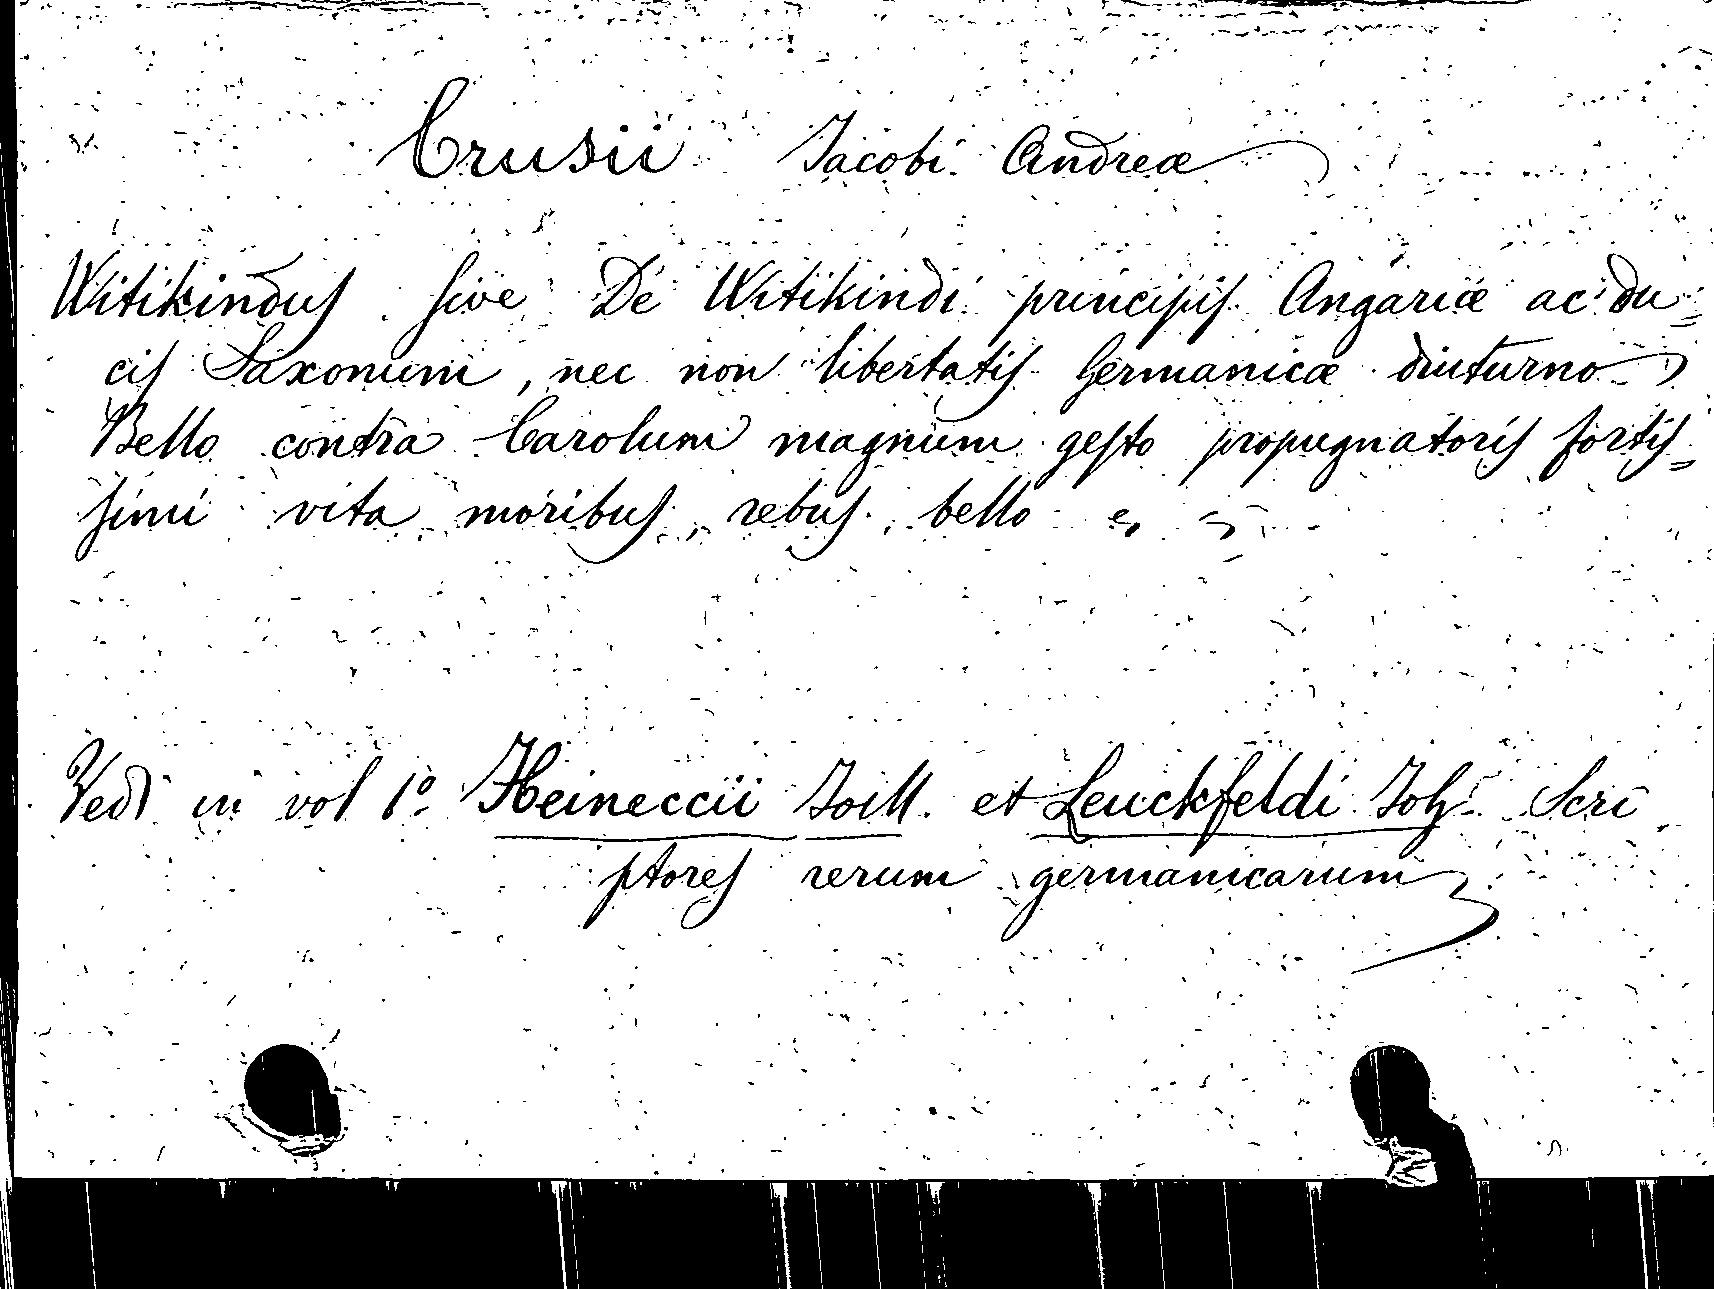 Crusii Jacobi Andreæ
Witikindus sive De Witikindi principis Angariæ ac du=
cis Saxonum, nec non libertatis Germanicæ diuturno
Bello contra Carolum magnum gesto propugnatoris fortis=
simi vita, moribus, rebus, bello
Vedi in vol 1º Heineccii et Leuckfeldi Joh Scri
ptores rerum germanicarum